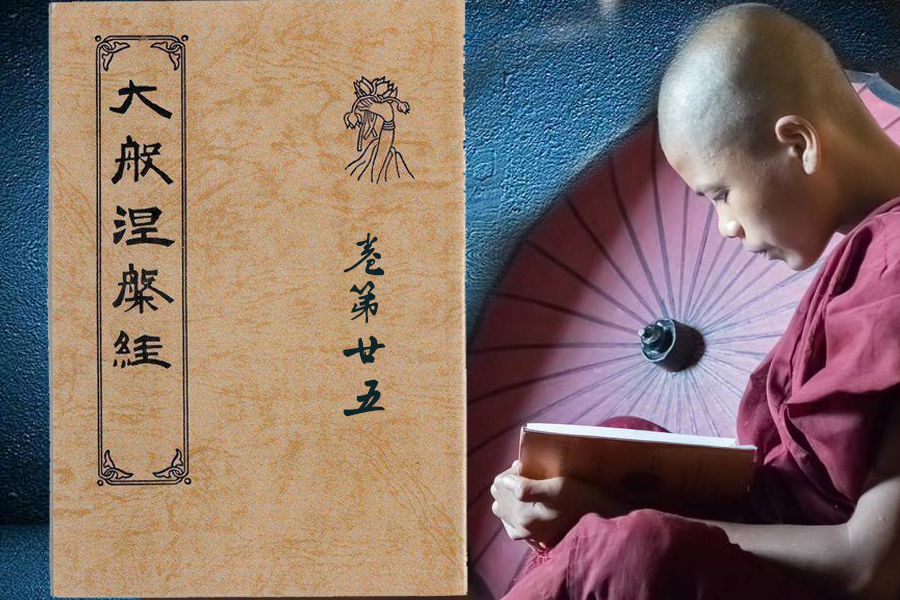 大般涅槃經
卷第廿五